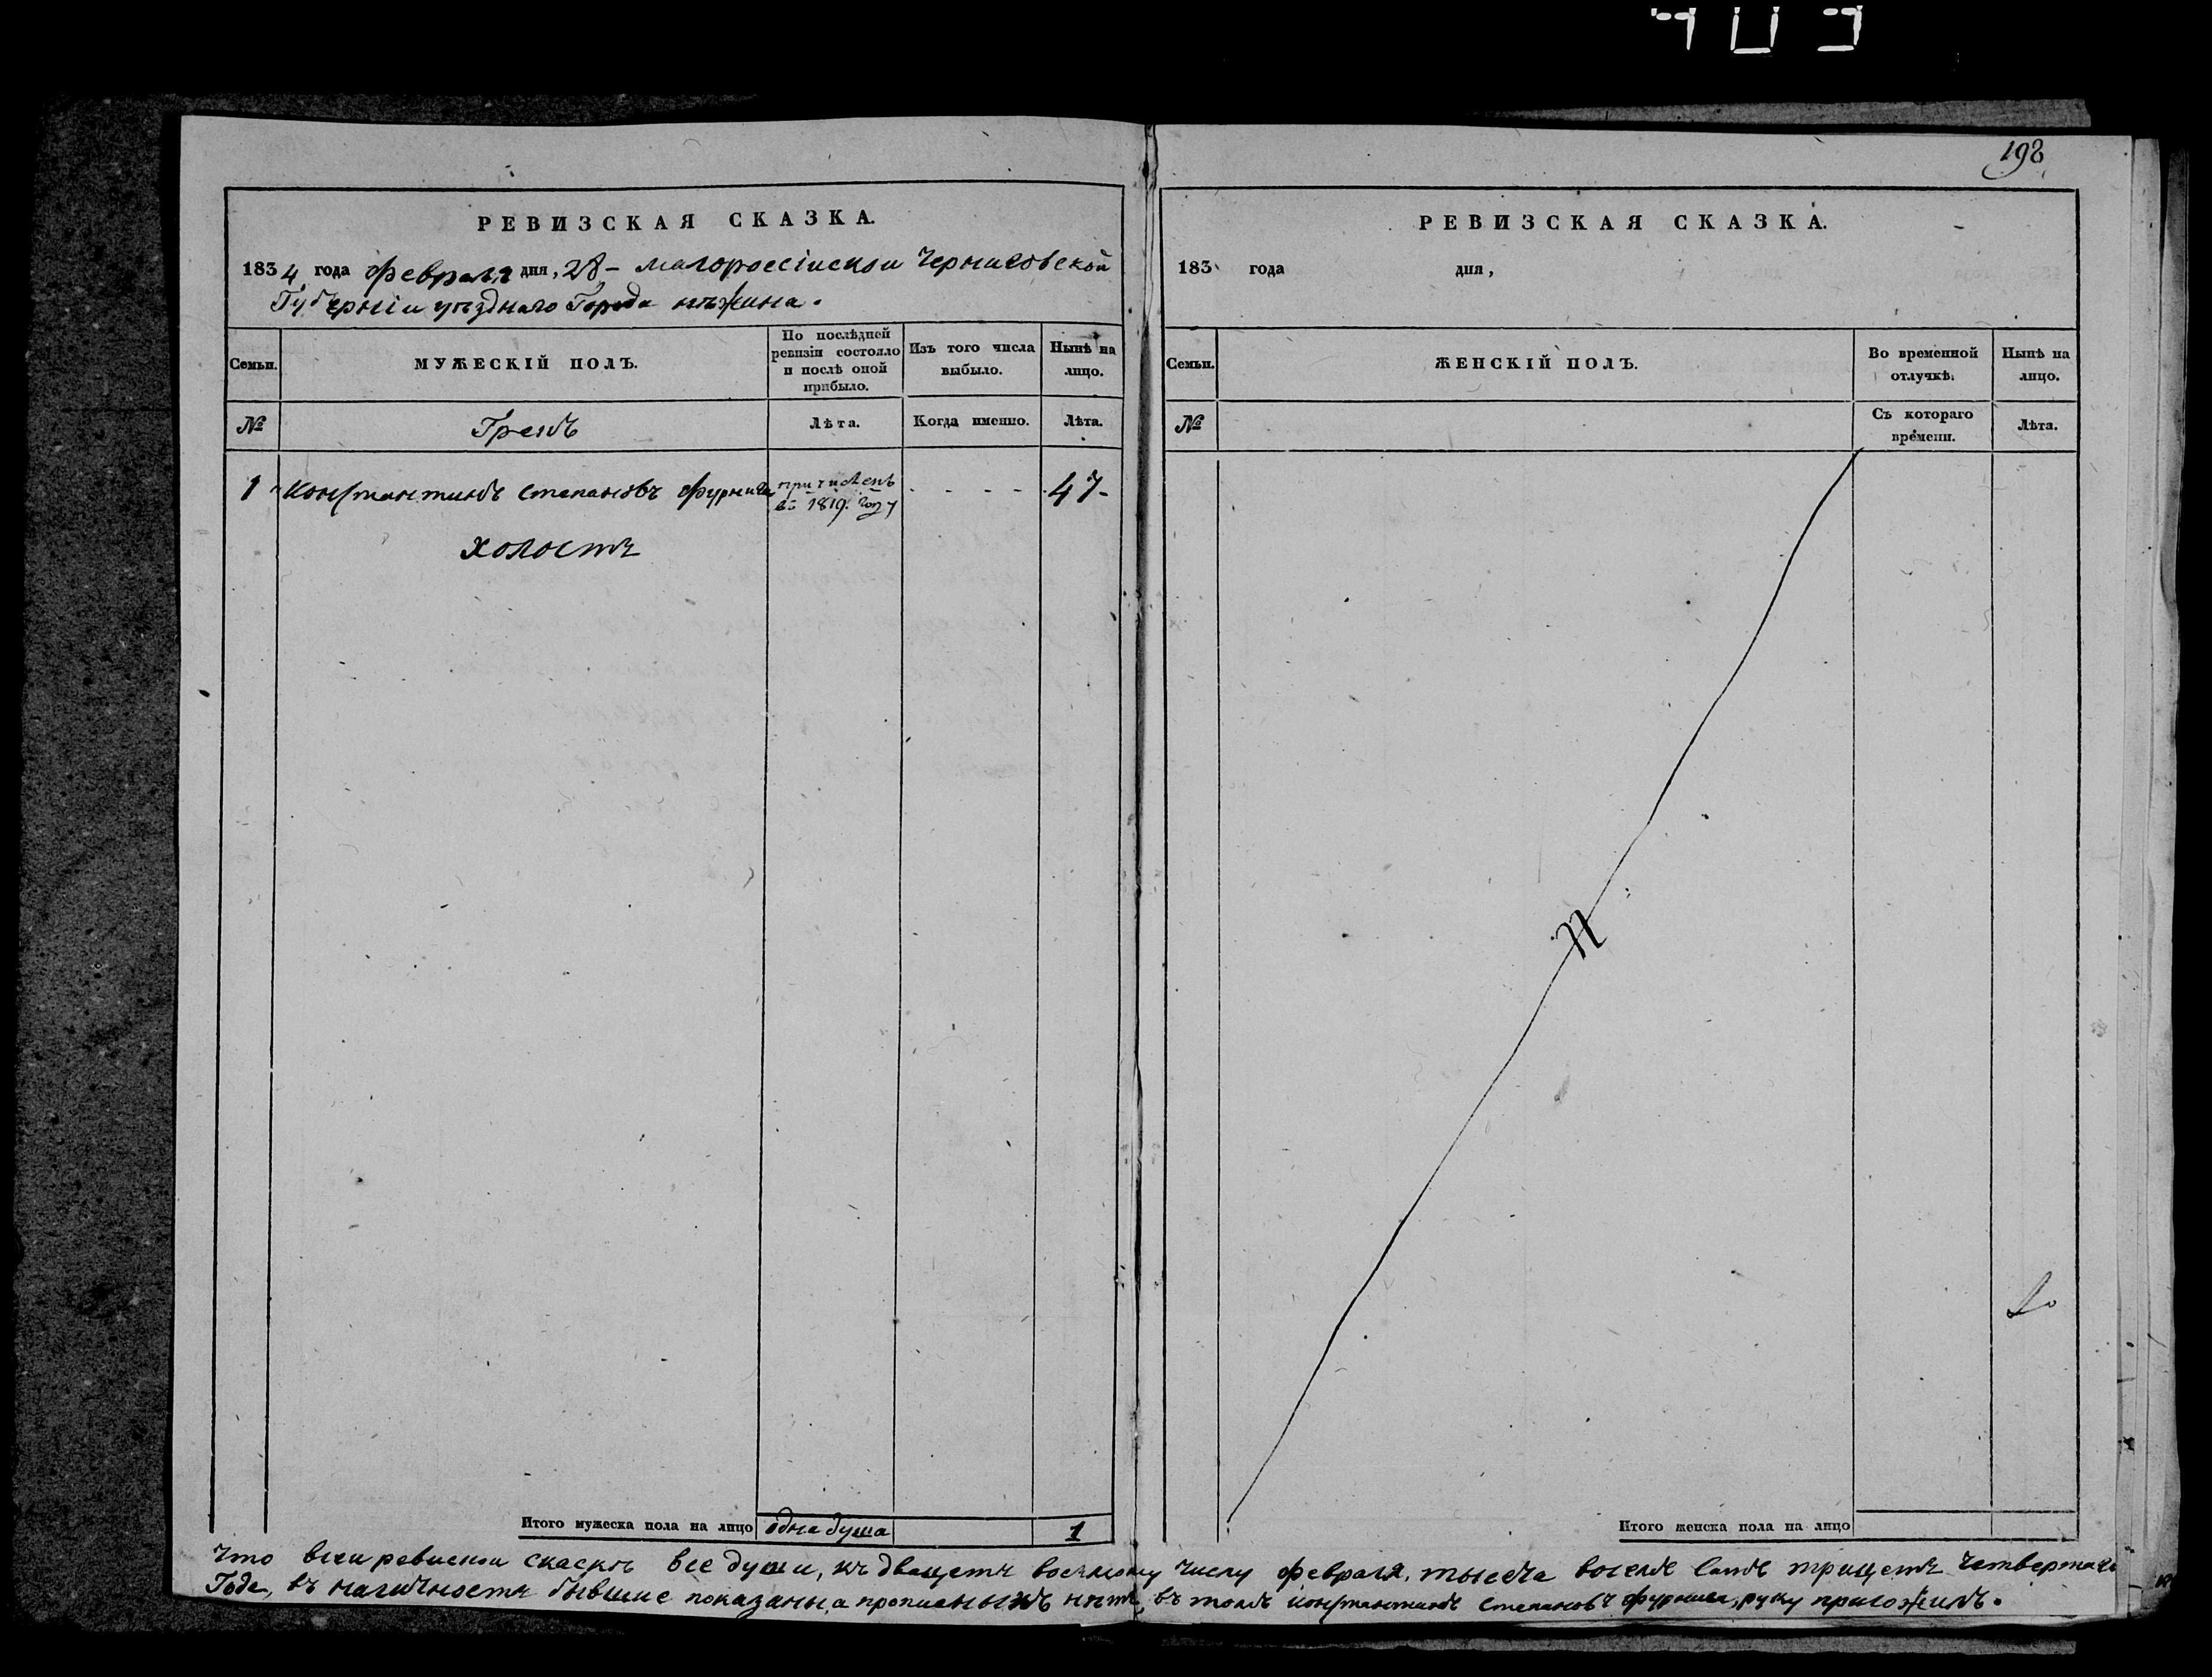 198
РЕВИЗСКАЯ СКАЗКА.
1834 года февраля дня, 28 – малороссіискои Черниговской
Губерніи уѣзднаго Города нѣжина.
Семьи.
МУЖЕСКІЙ ПОЛЪ.
По послѣдней
ревизіи состояло
и послѣ оной
прибыло.
Изъ того числа
выбыло.
Нынѣ на
лицо.
№
Грекъ
Лѣта.
Когда именно.
Лѣта.
1 Константинъ степановъ фурнига
причисленъ
въ 1819. году
- - - -
47-
холостъ
Итого мужеска пола на лицо одна душа 1
РЕВИЗСКАЯ СКАЗКА.
183 года дня,
Семьи.
ЖЕНСКІЙ ПОЛЪ.
Во временной
отлучкѣ.
Нынѣ на
лицо.
№
Съ котораго
времени.
Лѣта.
Итого женска пола на лицо
Что всеи ревискои скаскѣ все души, къ двацеть восьмому числу февраля, тысеча воземъ сапъ трицеть четвертаго
Года, въ наличности бывшие показаны, а прописныхъ нѣтъ, въ томъ константинъ степановъ фурнига, руку приложилъ.